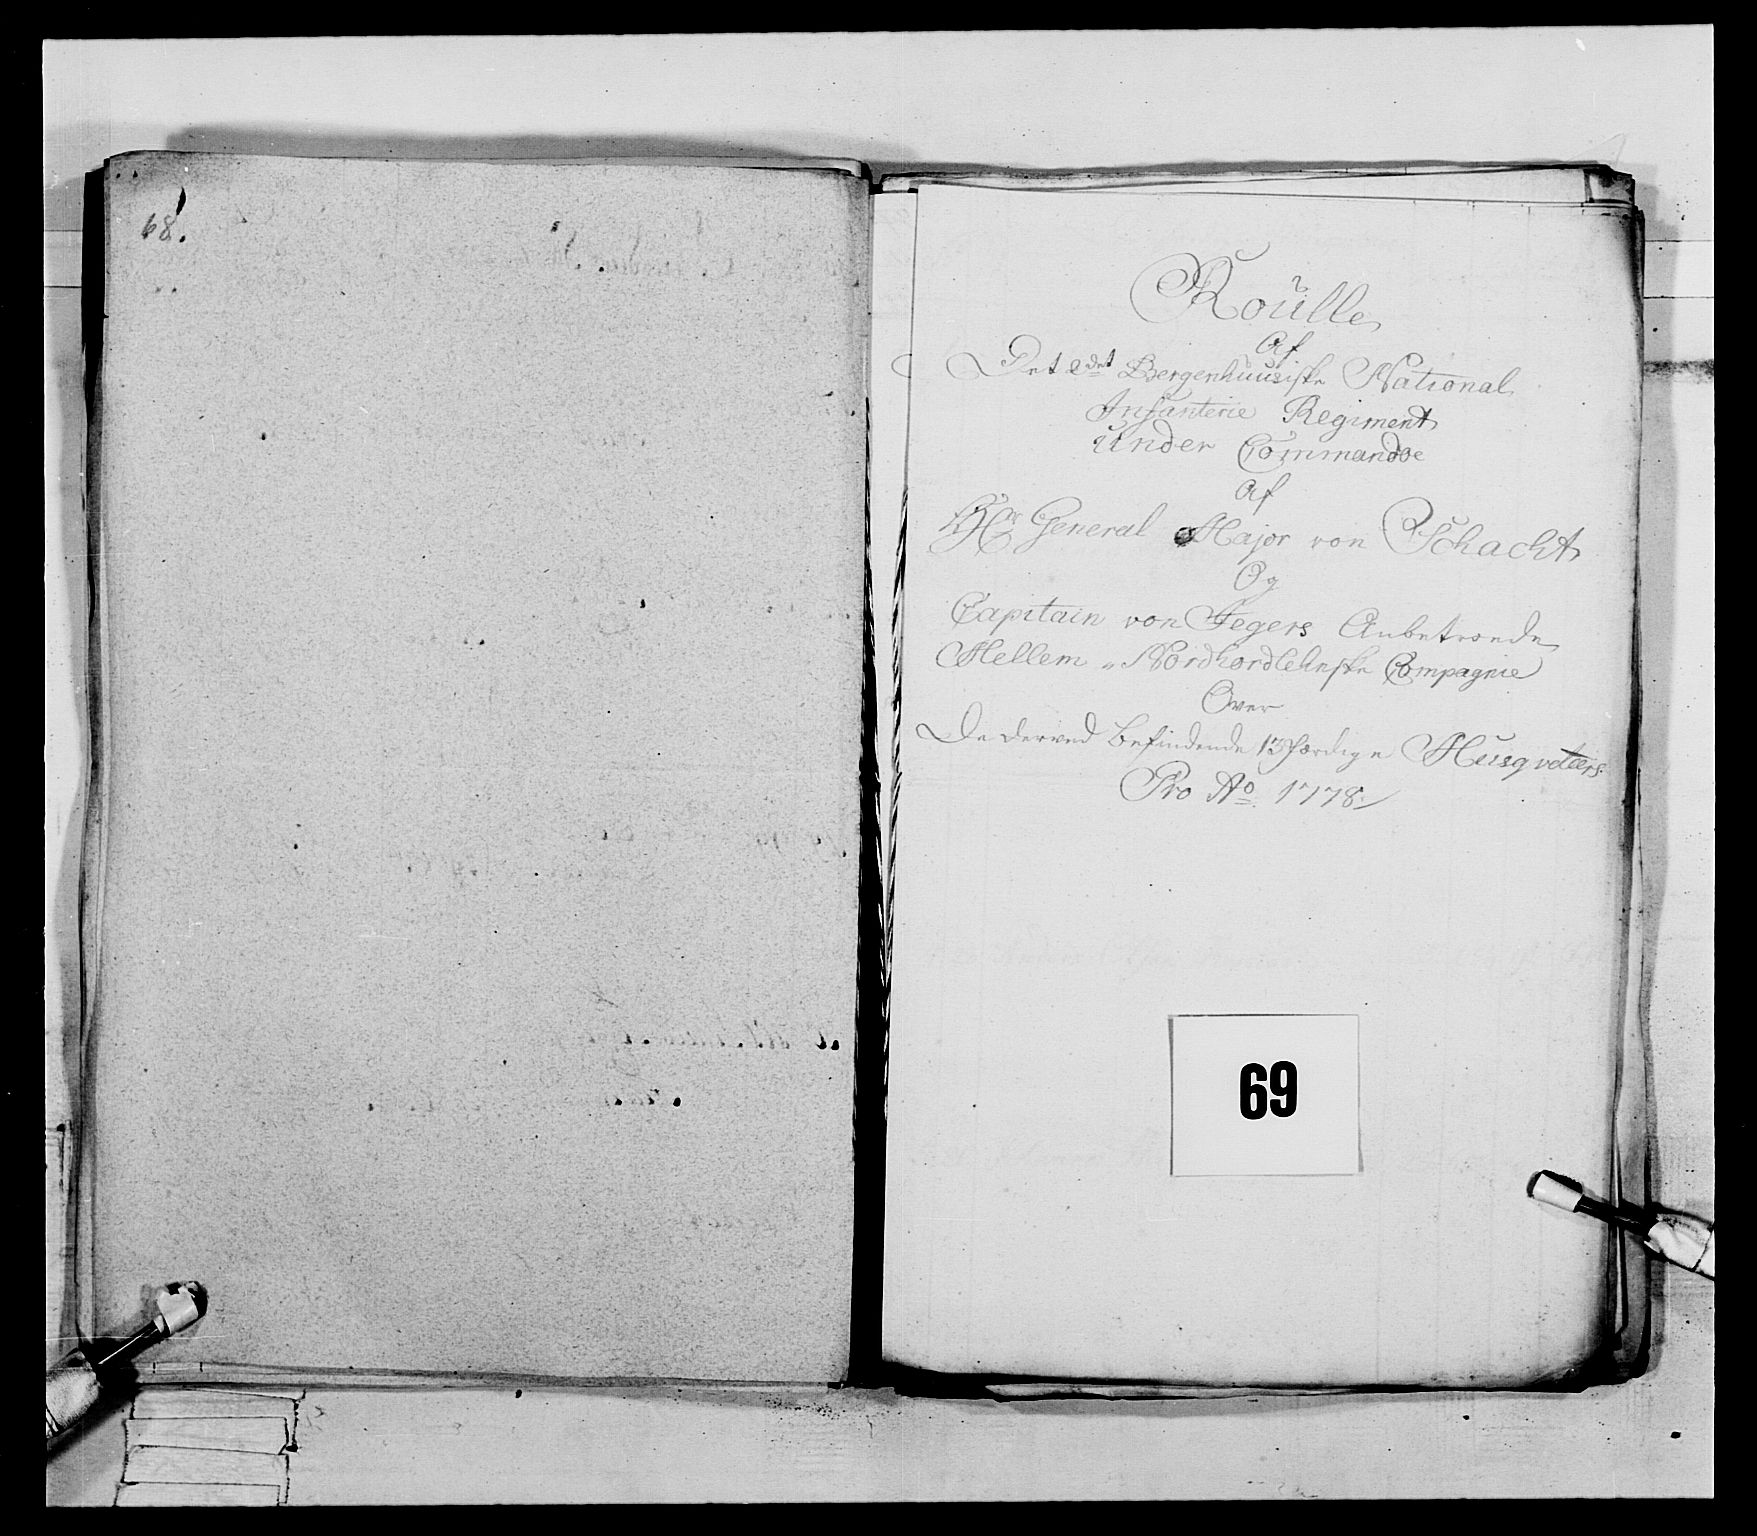 68.
Roülle
Af
Det 2det Bergenhuusiske National
Infanterie Regiment
under Commandoe
Af
Hr General Major von Schacht
Og
Capitain von Jegers Anbetroede
Mellem Nordhordlehnske Compagnie
Over
De derved befindende 13 færdige Musqveteers
Pro Ao 1778
69